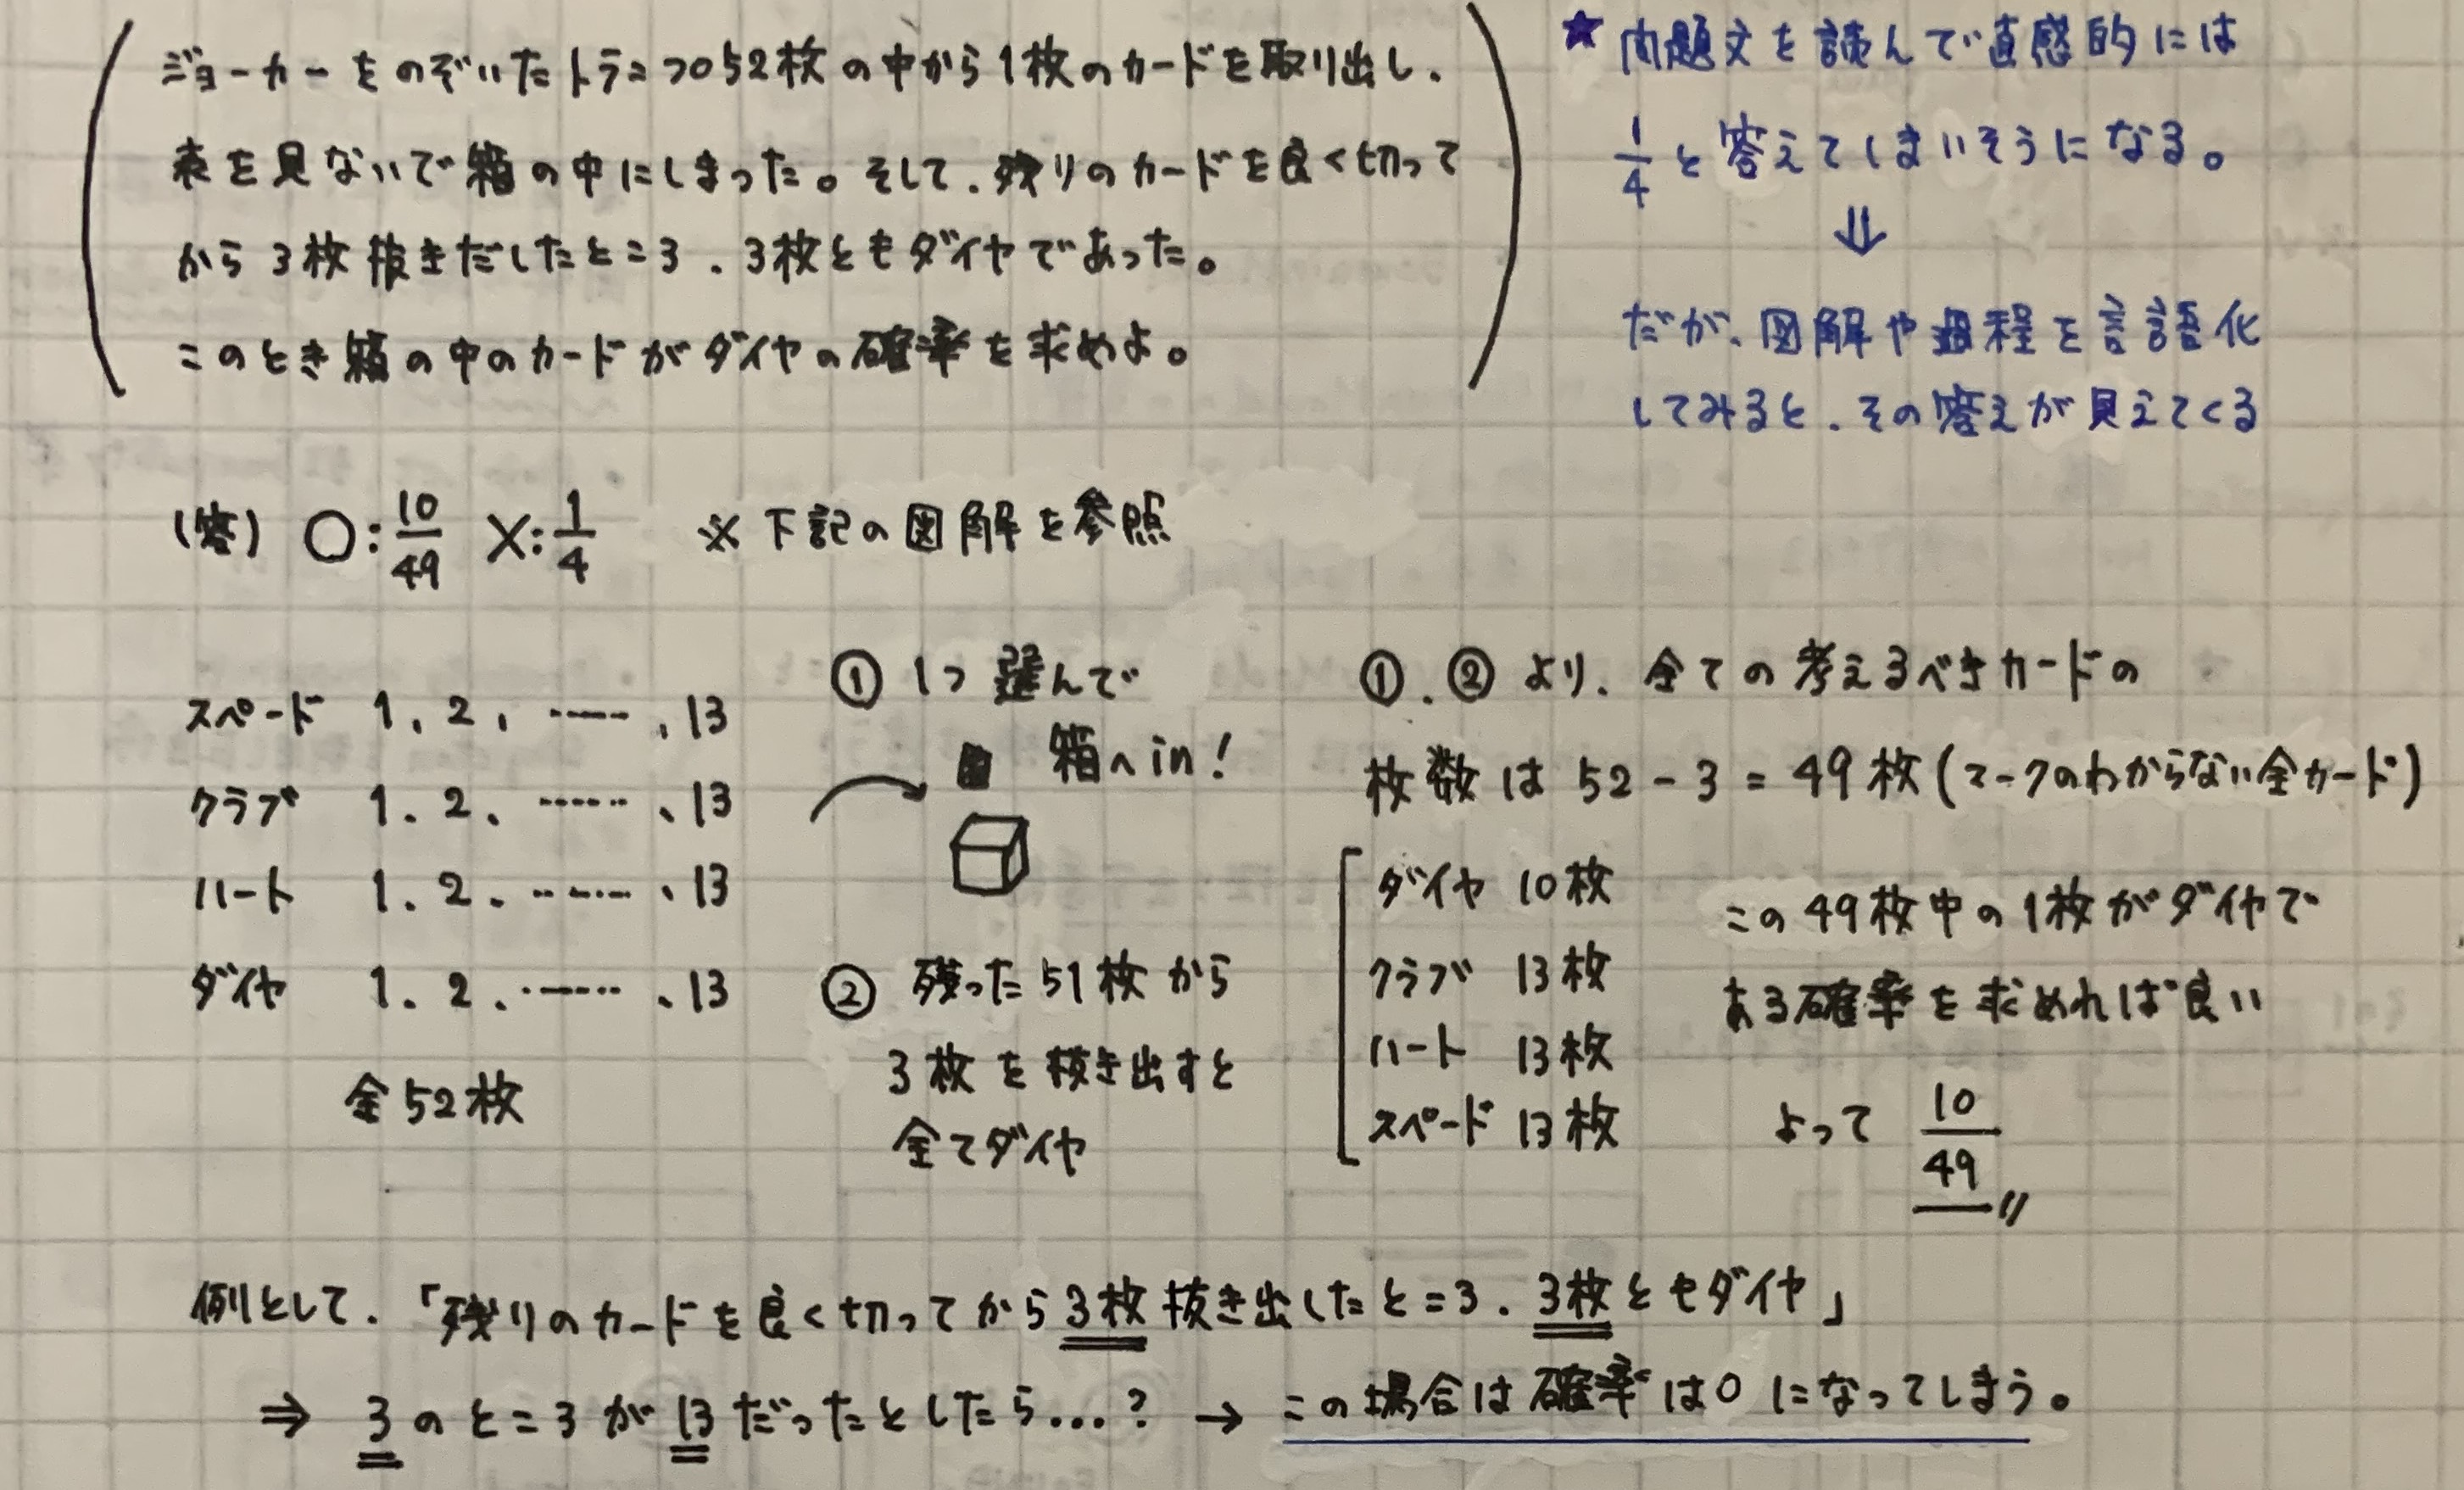 ジョーカーをのぞいたトランプ52枚の中から1枚のカードを取り出し、
表を見ないで箱の中にしまった。そして、残りのカードを良く切って
から3枚抜きだしたところ、3枚ともダイヤであった。
このとき箱の中のカードがダイヤの確率を求めよ。
★ 問題文を読んで直感的には
1/4と答えてしまいそうになる。
⇓
だが、図解や過程を言語化
してみると、その答えが見えてくる
(答) ○:10/49 X:1/4 ※下記の図解を参照
スペード 1、2、……、13
クラブ 1、2、……、13
ハート 1、2、……、13
ダイヤ 1、2、……、13
全52枚
① 1つ選んで
箱へin!
② 残った51枚から
3枚を抜き出すと
全てダイヤ
①、②より、全ての考えるべきカードの
枚数は 52-3=49枚(マークのわからない全カード)
ダイヤ 10枚
クラブ 13枚
ハート 13枚
スペード 13枚
この49枚中の1枚がダイヤで
ある確率を求めれば良い
よって 10/49
例として、「残りのカードを良く切ってから3枚抜き出したところ、3枚ともダイヤ」
⇒ 3のところが13だったとしたら…? → この場合は確率は0になってしまう。